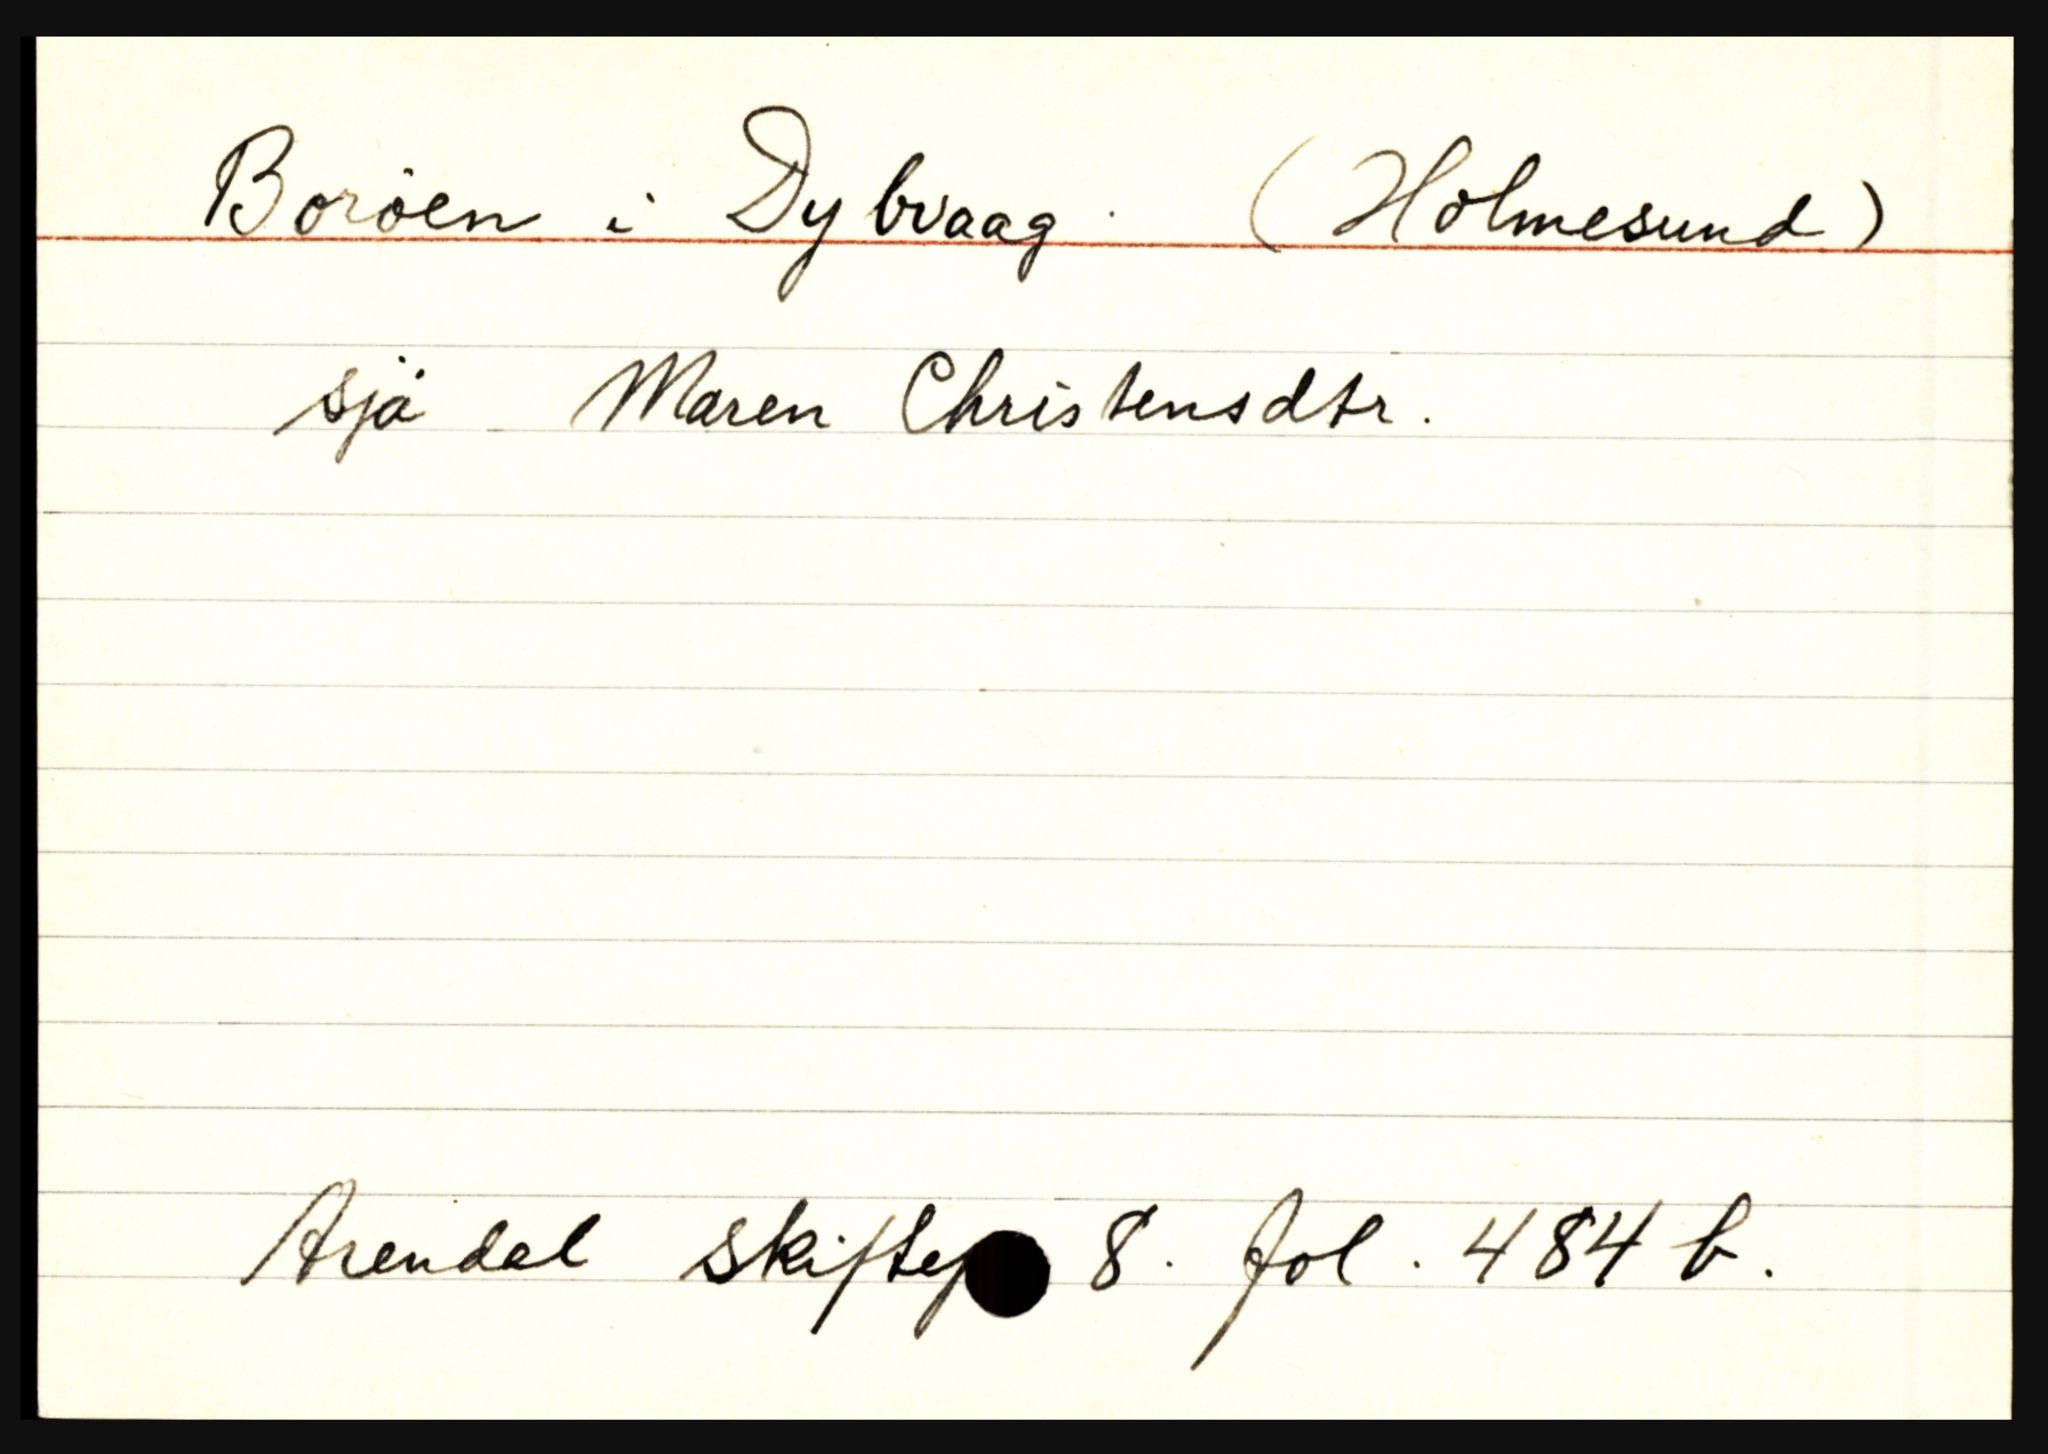 Boröen i Dybvaag. (Holmesund)
sjå Maren Christensdtr.
Arendal skiftep 8. fol. 484 b.